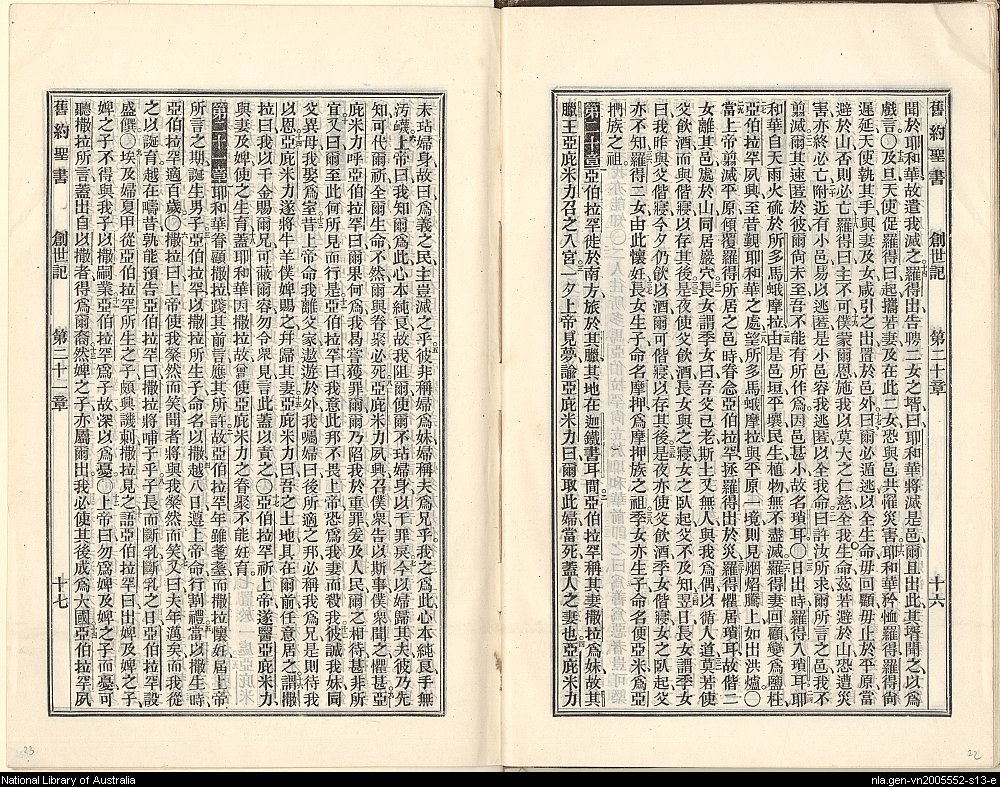 舊約聖書 創世記 第二十章 十六
聞於耶和華故遣我滅之羅得出告聘二女之壻曰耶和華將滅是邑爾且出此其壻聞之以爲
戲言○及旦天使促羅得曰起攜若妻及在此二女恐與邑共罹災害耶和華矜恤羅得羅得尙
遲延天使執其手與妻及女咸引之出置於邑外曰爾必遁逃以全生命毋回顧毋止於平原當
避於山否則必亡羅得曰主不可僕蒙爾恩施我以莫大之仁慈全我生命茲若避於山恐遭災
害亦終必亡附近有小邑易以逃匿是小邑容我逃匿以全我命曰許汝所求爾所言之邑我不
翦滅爾其速匿於彼爾尙未至吾不能有所作爲因邑甚小故名瑣耳○日出時羅得入瑣耳耶
和華自天雨火硫於所多馬蛾摩拉由是邑垣平壤民生植物無不盡滅羅得妻回顧變爲鹽柱
亞伯拉罕夙興至昔覲耶和華之處望所多馬蛾摩拉與平原一境則見烟焰騰上如出洪爐○
當上帝翦滅平原傾覆羅得所居之邑時眷念亞伯拉罕拯羅得出於災羅得懼居瑣耳故偕二
女離其邑處於山同居巖穴長女謂季女曰吾父已老斯土又無人與我爲偶以循人道莫若使
父飲酒而與偕寢以存其後是夜使父飲酒長女與之寢女之臥起父不及知翌日長女謂季女
曰我昨與父偕寢今夕仍飲以酒爾可偕寢以存其後是夜亦使父飲酒季女偕寢女之臥起父
亦不知羅得二女由此懷妊長女生子命名摩押爲摩押族之祖季女亦生子命名便亞米爲亞
捫族之祖
第二十章亞伯拉罕徙於南方旅於其臘其地在迦鐵書耳間亞伯拉罕稱其妻撒拉爲妹故其
臘王亞庇米力召之入宮一夕上帝見夢諭亞庇米力曰爾取此婦當死蓋人之妻也亞庇米力
未玷婦身故曰爲義之民主豈滅之乎彼非稱婦爲妹婦稱夫爲兄乎我之爲此心本純良手無
汚衊上帝曰我知爾爲此心本純良故我阻爾使爾不玷婦身以干罪戾今以婦歸其夫彼乃先
知可代爾祈全爾生命不然爾與眷聚必死亞庇米力夙興召僕衆告以斯事僕衆聞之懼甚亞
庇米力呼亞伯拉罕曰爾果何爲我曷嘗獲罪爾爾乃陷我於重罪爰及人民爾之相待甚非所
宜又曰爾至此何所見而行是亞伯拉罕曰我意此邦不畏上帝恐爲我妻而殺我彼誠我妹同
父異母我娶爲室昔上帝命我離父家遨遊於外我囑婦曰後所適之邦必稱我爲兄是則待我
以恩亞庇米力遂將牛羊僕婢賜之幷歸其妻亞庇米力曰吾之土地具在爾前任意居之謂撒
拉曰我以千金賜爾兄可蔽爾容勿令衆見言此蓋以責之○亞伯拉罕祈上帝遂醫亞庇米力
與妻及婢使之生育蓋耶和華因撒拉故曾使亞庇米力之眷聚不能妊育
第二十一章耶和華眷顧撒拉踐其前言應其所許故亞伯拉罕年雖耄耋而撒拉懷妊屆上帝
所言之期誕生男子亞伯拉罕以撒拉所生子命名以撒越八日遵上帝命行割禮當以撒生時
亞伯拉罕適百歲○撒拉曰上帝使我粲然而笑聞者將與我粲然而笑又曰夫年邁矣而我從
之以誕育越在疇昔孰能預告亞伯拉罕曰撒拉將哺子乎子長而斷乳斷乳之日亞伯拉罕設
盛饌○埃及婦夏甲從亞伯拉罕所生之子頗興譏刺撒拉見之語亞伯拉罕曰出婢與婢之子
婢之子不得與我子以撒嗣業亞伯拉罕爲子故深以爲憂○上帝曰勿爲婢及婢之子而憂可
聽撒拉所言蓋出自以撒者得爲爾裔然婢之子亦屬爾出我必使其後成爲大國亞伯拉罕夙
舊約聖書 創世記 第二十一章 十七
23
22
National Library of Australia
nla.gen-vn2005552-s13-e